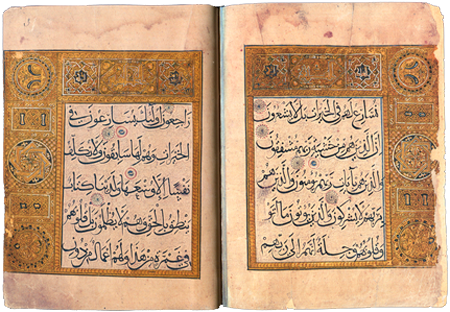 نسارع لهم في الخيرات بل لا يشعرون
ان الذين هم من خشية ربهم مشفقون
والذين هم بآيات ربهم يؤمنون والذين هم
بربهم لا يشركون والذين يؤتون ما آتوا
وقلوبهم وجلة أنهم إلى ربهم
راجعون أولئك يسارعون في
الخيرات وهم لها سابقون ولا نكلف
نفسا إلا وسعها ولدينا كتاب
ينطق بالحق وهم لا يظلمون بل قلوبهم
في غمرة من هذا ولهم أعمال من دون